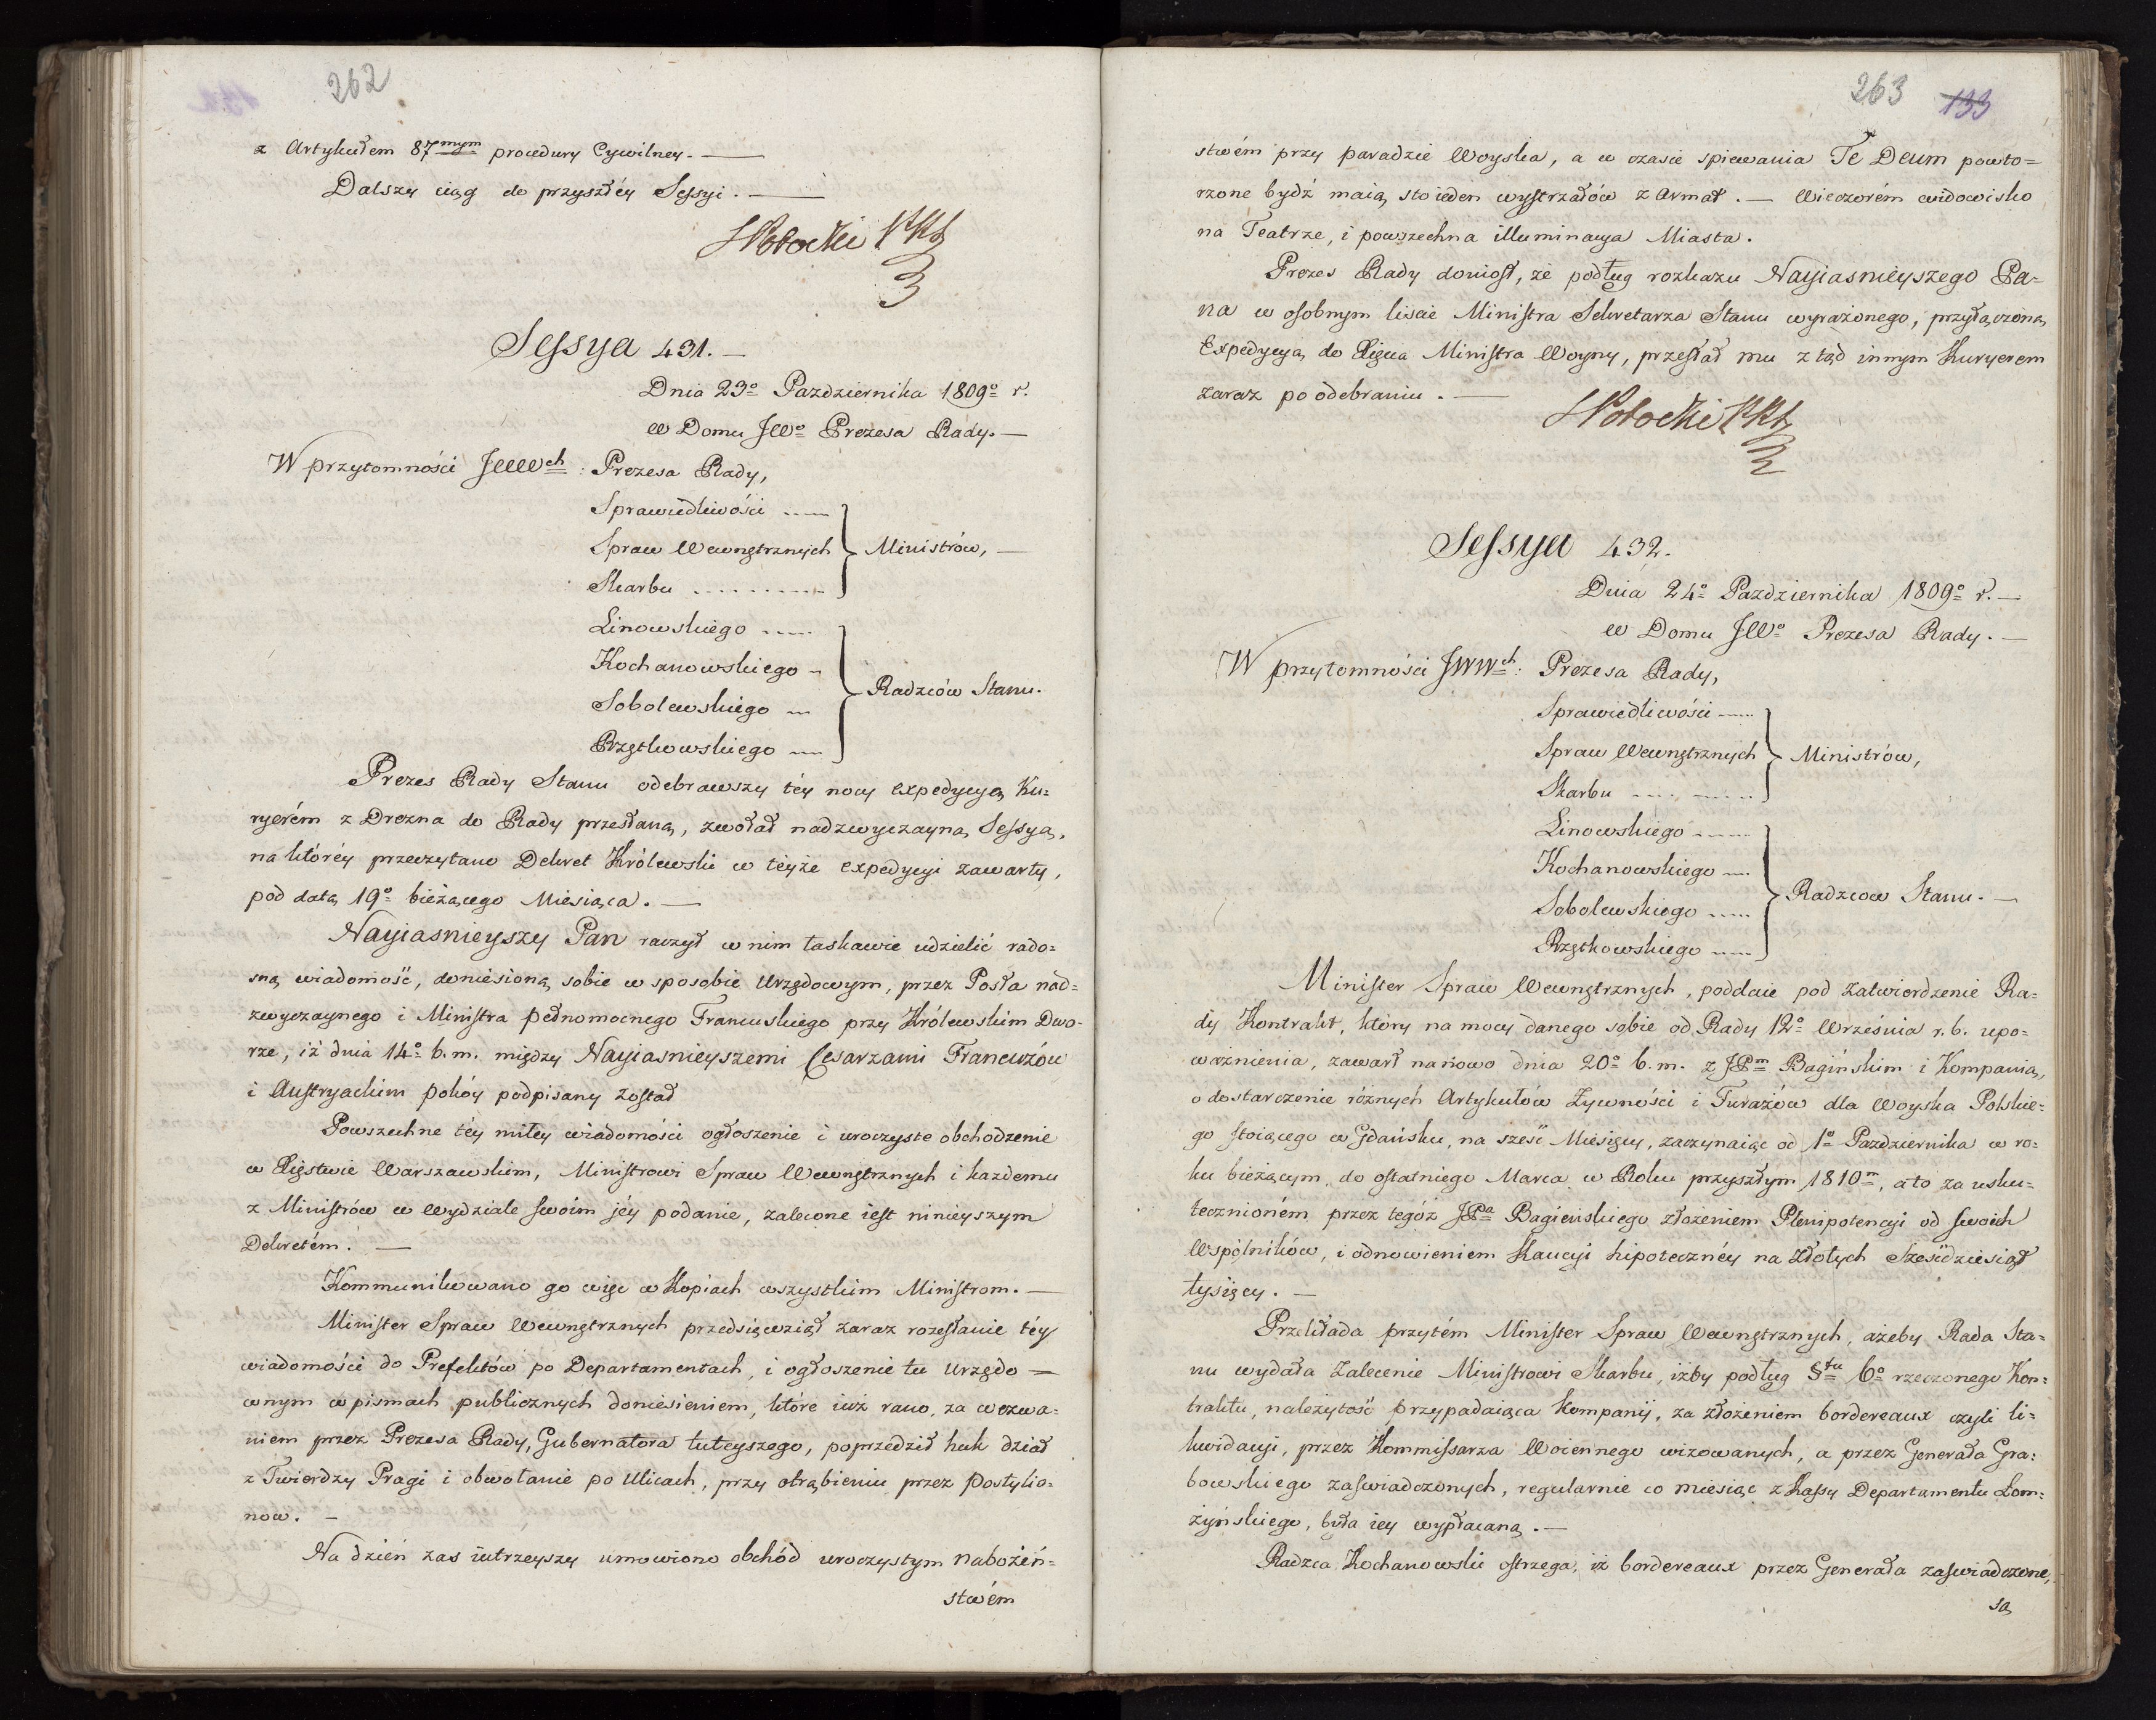 262
z Artykułem 87mym procedury Cywilney. —
Dalszy ciąg do przyszłéy Sessyi. —
SPotocki PRS
Sessya 431. —
Dnia 23o Pazdziernika 1809o r.
w Domu JWo Prezesa Rady. —
W przytomności JWWch: Prezesa Rady,
Sprawiedliwości ......
Spraw Wewnętrznych } Ministrów, —
Skarbu ..........
Linowskiego .....
Kochanowskiego —
Sobolewskiego ... } Radzców Stanu.
Przętkowskiego ....
Prezes Rady Stanu odebrawszy téy nocy expedycyą Ku=
ryerém z Drezna do Rady przesłaną, zwołał nadzwyczayną Sessyą,
na któréy przeczytano Dekret Królewski w téyże expedycyi zawarty,
pod datą 19o bieżącego Miesiąca. —
Nayiasnieyszy Pan raczył w nim łaskawie udzielić rado=
sną wiadomość, doniesioną sobie w sposobie Urzędowym, przez Posła nad=
zwyczaynego i Ministra pełnomocnego Francuskiego przy Królewskim Dwo=
rze, iż dnia 14o b. m. między Nayiasnieyszemi Cesarzami Francuzów
i Austryackim pokóy podpisany został
Powszechne téy miłey wiadomości ogłoszenie i uroczyste obchodzenie
w Xięstwie Warszawskim, Ministrowi Spraw Wewnętrznych i każdemu
z Ministrów w Wydziale swoim jéy podanie, zalecone iest ninieyszym
Dekretém. —
Kommunikowano go więc w Kopiach wszystkim Ministrom. —
Minister Spraw Wewnętrznych przedsięwziął zaraz rozesłanie téy
wiadomości do Prefektów po Departamentach, i ogłoszenie tu Urzędo=
wnym w pismach publicznych doniesieniem, które iuż rano, za wezwa=
niem przez Prezesa Rady, Gubernatora tuteyszego, poprzedził huk dział
z Twierdzy Pragi i obwołanie po Ulicach, przy otrąbieniu przez Postylio=
now. —
Na dzień zas iutrzeyszy umowiono obchód uroczystym nabożeń=
stwém
263 133
stwém przy paradzie Woyska, a w czasie spiewania Te Deum powto=
rzone bydź maią sto ieden wystrzałów z Armat. — Wieczorém widowisko
na Teatrze, i powszechna illuminacya Miasta.
Prezes Rady doniosł, że podług rozkazu Nayiasnieyszego Pa=
na w osobnym liście Ministra Sekretarza Stanu wyrażonego, przyłączoną
Expedycyą do Xięcia Ministra Woyny, przesłał mu z tąd innym Kuryerem
zaraz po odebraniu. —
SPotocki PRS
Sessya 432.
Dnia 24o Pazdziernika 1809o r. —
w Domu JWo Prezesa Rady. —
W przytomności JWWch: Prezesa Rady,
Sprawiedliwości .....
Spraw Wewnętrznych } Ministrów,
Skarbu ..........
Linowskiego ......
Kochanowskiego ...
Sobolewskiego ..... } Radzcow Stanu. —
Przętkowskiego .....
Minister Spraw Wewnętrznych, poddaie pod Zatwierdzenie Ra=
dy Kontrakt, który na mocy danego sobie od Rady 12o Września r. b. upo=
ważnienia, zawarł nanowo dnia 20o b. m. z JPm Bagińskim i Kompanią,
o dostarczenie róznych Artykułów Żywności i Furażów dla Woyska Polskie=
go stoiącego w Gdańsku, na sześć Miesięcy, zaczynaiąc od 1o Pazdziernika w ro=
ku bieżącym, do ostatniego Marca w Roku przyszłym 1810m, a to za usku=
tecznioném przez tegóż JPa Bagieńskiego złożeniem Plenipotencyi od swoich
Wspólników, i odnowieniem Kaucyi hipotecznéy na złotych Sześćdziesiąt
tysięcy. —
Przekłada przytém Minister Spraw Wewnętrznych, ażeby Rada Sta=
nu wydała Zalecenie Ministrowi Skarbu, iżby podług §tu 6o rzeczonego Kon=
traktu, należytość przypadaiąca Kompanij, za złożeniem bordereaux czyli li=
kwidacyi, przez Kommissarza Woiennego wizowanych, a przez Generała Gra=
bowskiego zaswiadczonych, regularnie co miesiąc z Kassy Departamentu Łom=
żyńskiego, była iey wypłacaną. —
Radzca Kochanowski ostrzega, iż bordereaux przez Generała zaswiadczone,
są